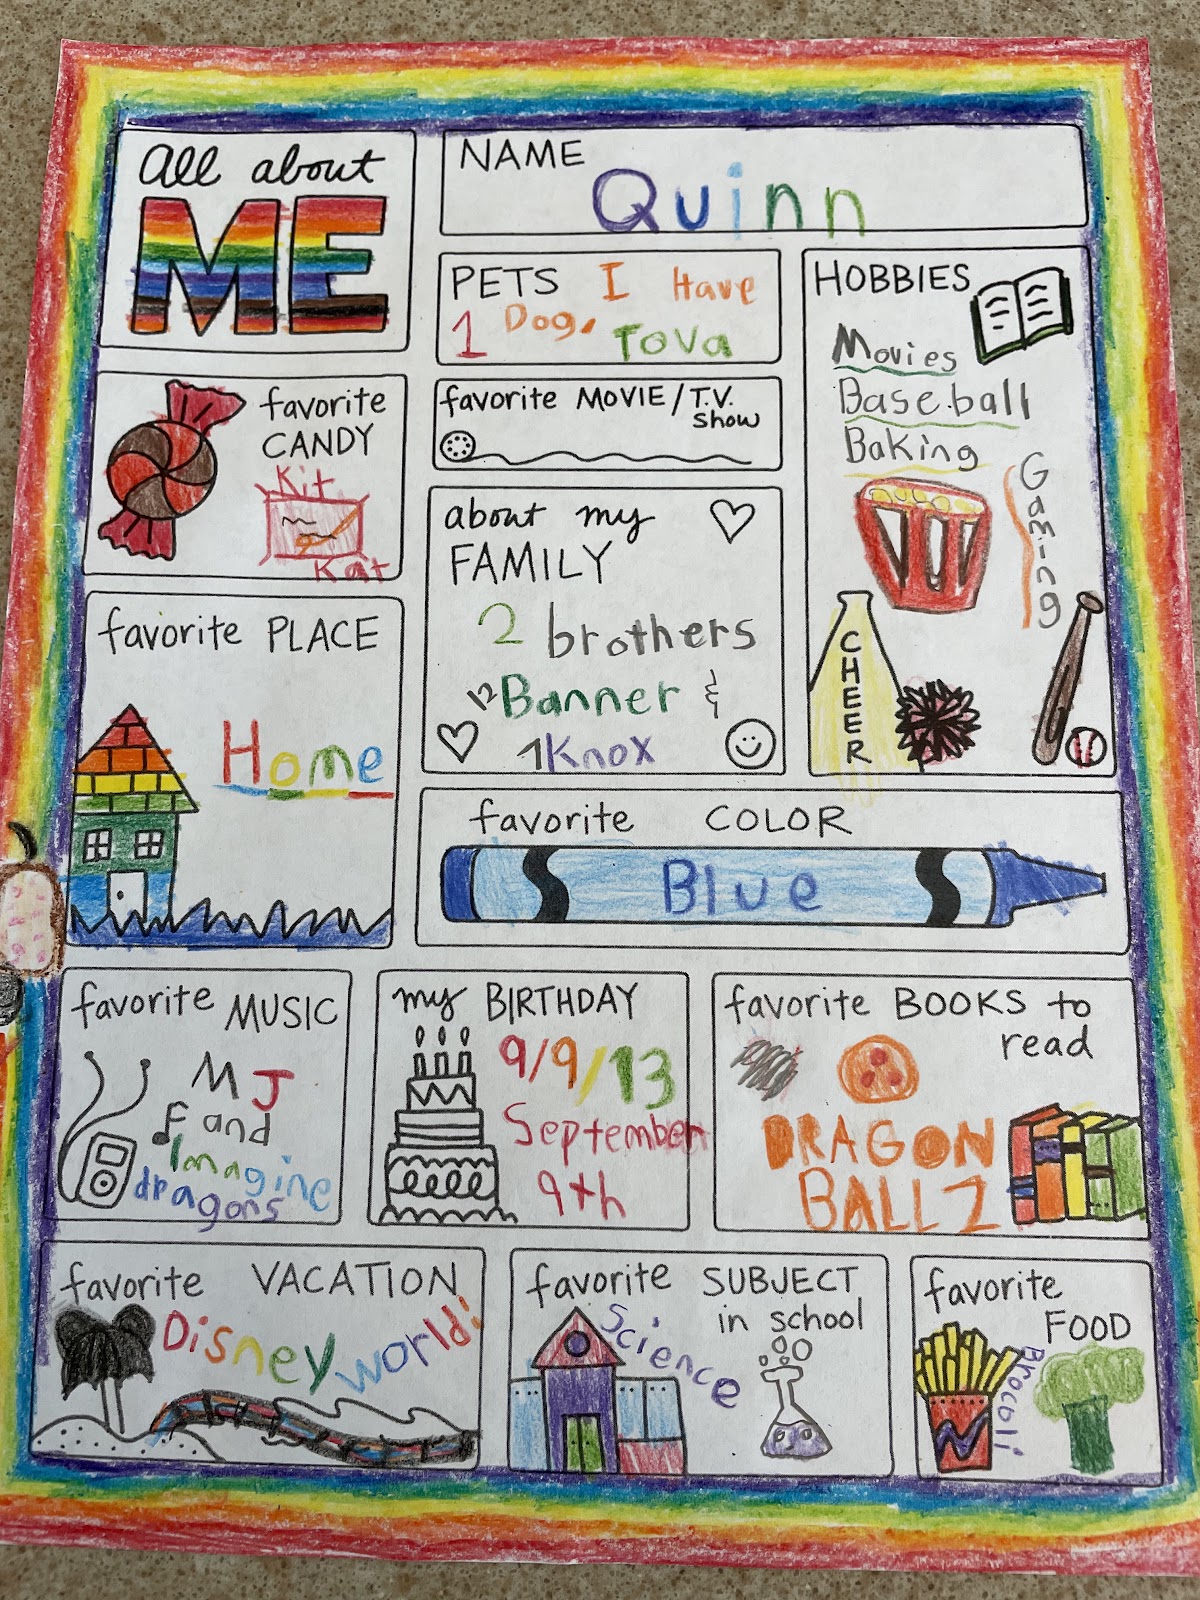 All about
ME
NAME
Quinn
PETS I Have
1 Dog, Tova
HOBBIES
Movies
Baseball
Baking
Gaming
CHEER
favorite
CANDY
Kit
Kat
favorite MOVIE/T.V.
Show
about my
FAMILY
2 brothers
12 Banner &
1 Knox
favorite PLACE
Home
favorite COLOR
Blue
favorite MUSIC
MJ
and
Imagine
dragons
my BIRTHDAY
9/9/13
September
9th
favorite BOOKS to
read
DRAGON
BALL Z
favorite VACATION
Disney world!
favorite SUBJECT
in school
Science
favorite
FOOD
Brocoli